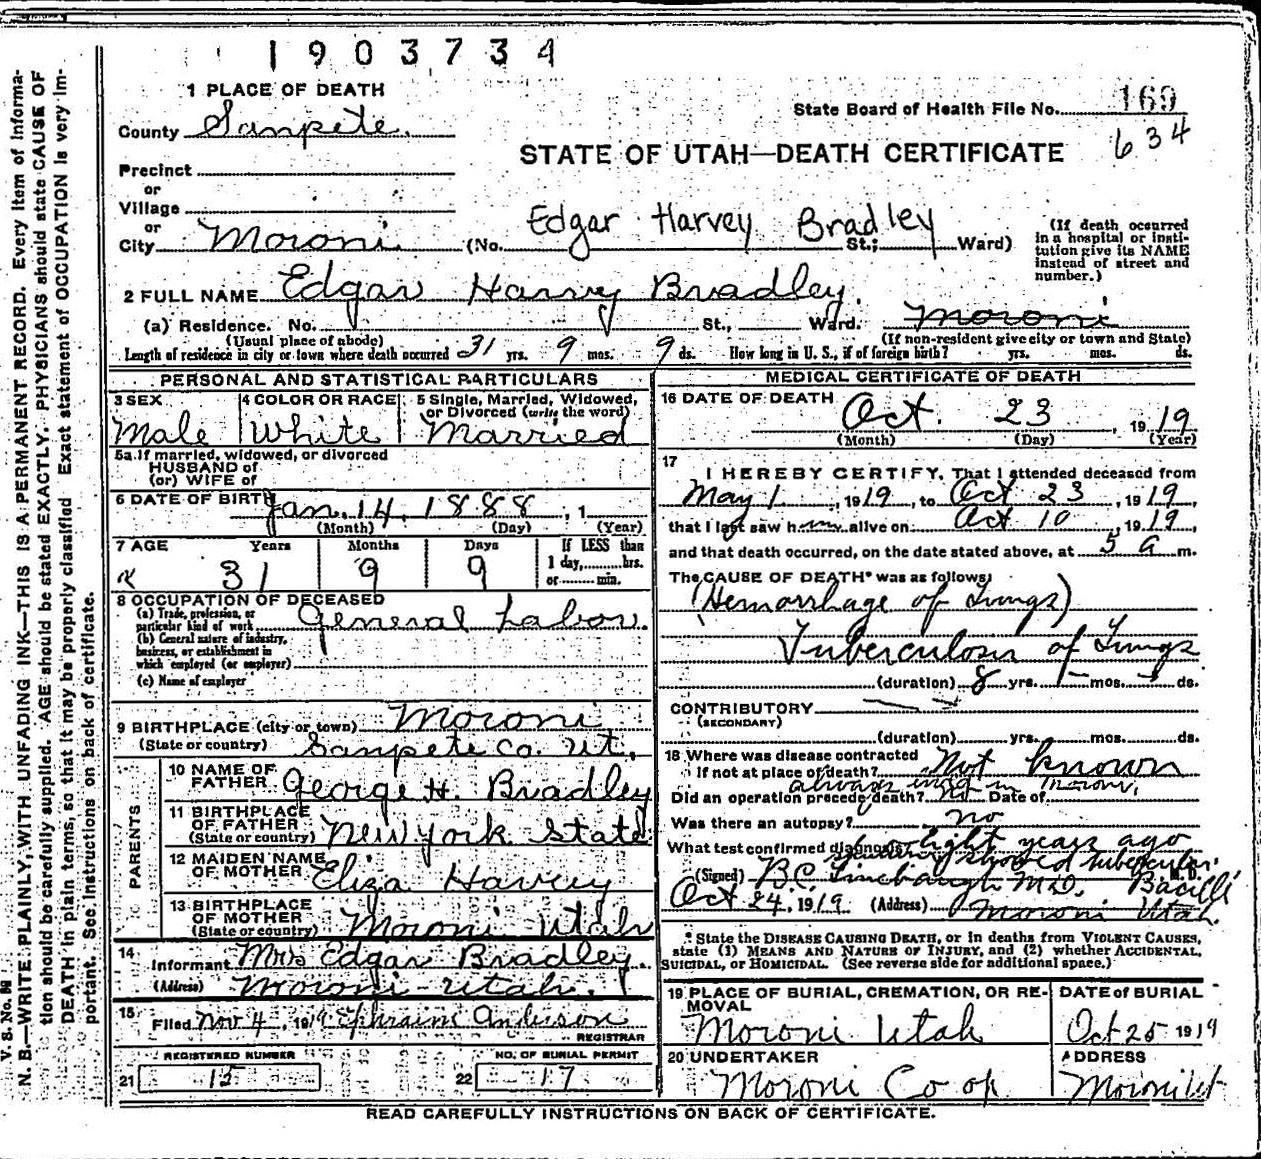 1903734
1 PLACE OF DEATH
State Board of Health File No. 169
County Sanpete.
634
STATE OF UTAH—DEATH CERTIFICATE
Precinct
or
Village
or
City Moroni (No. Edgar Harvey Bradley St.; Ward)
(If death occurred in a hospital or institution give its NAME instead of street and number.)
2 FULL NAME Edgar Harvy Bradley.
(a) Residence. No. St., Ward. Moroni
(Usual place of abode) (If non-resident give city or town and State)
Length of residence in city or town where death occurred 31 yrs. 9 mos. 9 ds. How long in U. S., if of foreign birth? yrs. mos. ds.
PERSONAL AND STATISTICAL PARTICULARS
3 SEX 4 COLOR OR RACE 5 Single, Married, Widowed, or Divorced (write the word)
Male White Married
5a If married, widowed, or divorced
HUSBAND of
(or) WIFE of
6 DATE OF BIRTH Jan. 14. 1888, 1
(Month) (Day) (Year)
7 AGE Years Months Days If LESS than
1 day, hrs.
or min.
31 9 9
8 OCCUPATION OF DECEASED
(a) Trade, profession, or
particular kind of work General Labor.
(b) General nature of industry,
business, or establishment in
which employed (or employer)
(c) Name of employer
9 BIRTHPLACE (city or town) Moroni
(State or country) Sanpete Co. Ut.
PARENTS
10 NAME OF
FATHER George H. Bradley
11 BIRTHPLACE
OF FATHER
(State or country) New York State
12 MAIDEN NAME
OF MOTHER Eliza Harvey
13 BIRTHPLACE
OF MOTHER
(State or country) Moroni Utah
14 Informant Mrs Edgar Bradley
(Address) Moroni - Utah.
15 Filed Nov 4, 1919 Ephraim Anderson
REGISTRAR
REGISTERED NUMBER NO. OF BURIAL PERMIT
21 15 22 17
MEDICAL CERTIFICATE OF DEATH
16 DATE OF DEATH Oct. 23, 1919
(Month) (Day) (Year)
17 I HEREBY CERTIFY, That I attended deceased from
May 1, 1919, to Oct 23, 1919,
that I last saw him alive on Oct 10, 1919,
and that death occurred, on the date stated above, at 5 a m.
The CAUSE OF DEATH* was as follows:
(Hemorrhage of Lungs)
Tuberculosis of Lungs
(duration) 8 yrs. - mos. - ds.
CONTRIBUTORY
(SECONDARY)
(duration) yrs. mos. ds.
18 Where was disease contracted
if not at place of death? Not known
always lived in Moroni.
Did an operation precede death? No Date of
Was there an autopsy? no
What test confirmed diagnosis? eight years ago
showed tubercular
(Signed) B.C. Linebaugh M.D. M. D. Bacilli
Oct 24, 1919 (Address) Moroni Utah.
* State the DISEASE CAUSING DEATH, or in deaths from VIOLENT CAUSES, state (1) MEANS AND NATURE OF INJURY, and (2) whether ACCIDENTAL, SUICIDAL, or HOMICIDAL. (See reverse side for additional space.)
19 PLACE OF BURIAL, CREMATION, OR REMOVAL DATE of BURIAL
Moroni Utah Oct 25 1919
20 UNDERTAKER ADDRESS
Moroni Co op Moroni Ut
READ CAREFULLY INSTRUCTIONS ON BACK OF CERTIFICATE.
V. S. No.
N. B.—WRITE PLAINLY, WITH UNFADING INK—THIS IS A PERMANENT RECORD. Every item of information should be carefully supplied. AGE should be stated EXACTLY. PHYSICIANS should state CAUSE OF DEATH in plain terms, so that it may be properly classified. Exact statement of OCCUPATION is very important. See instructions on back of certificate.